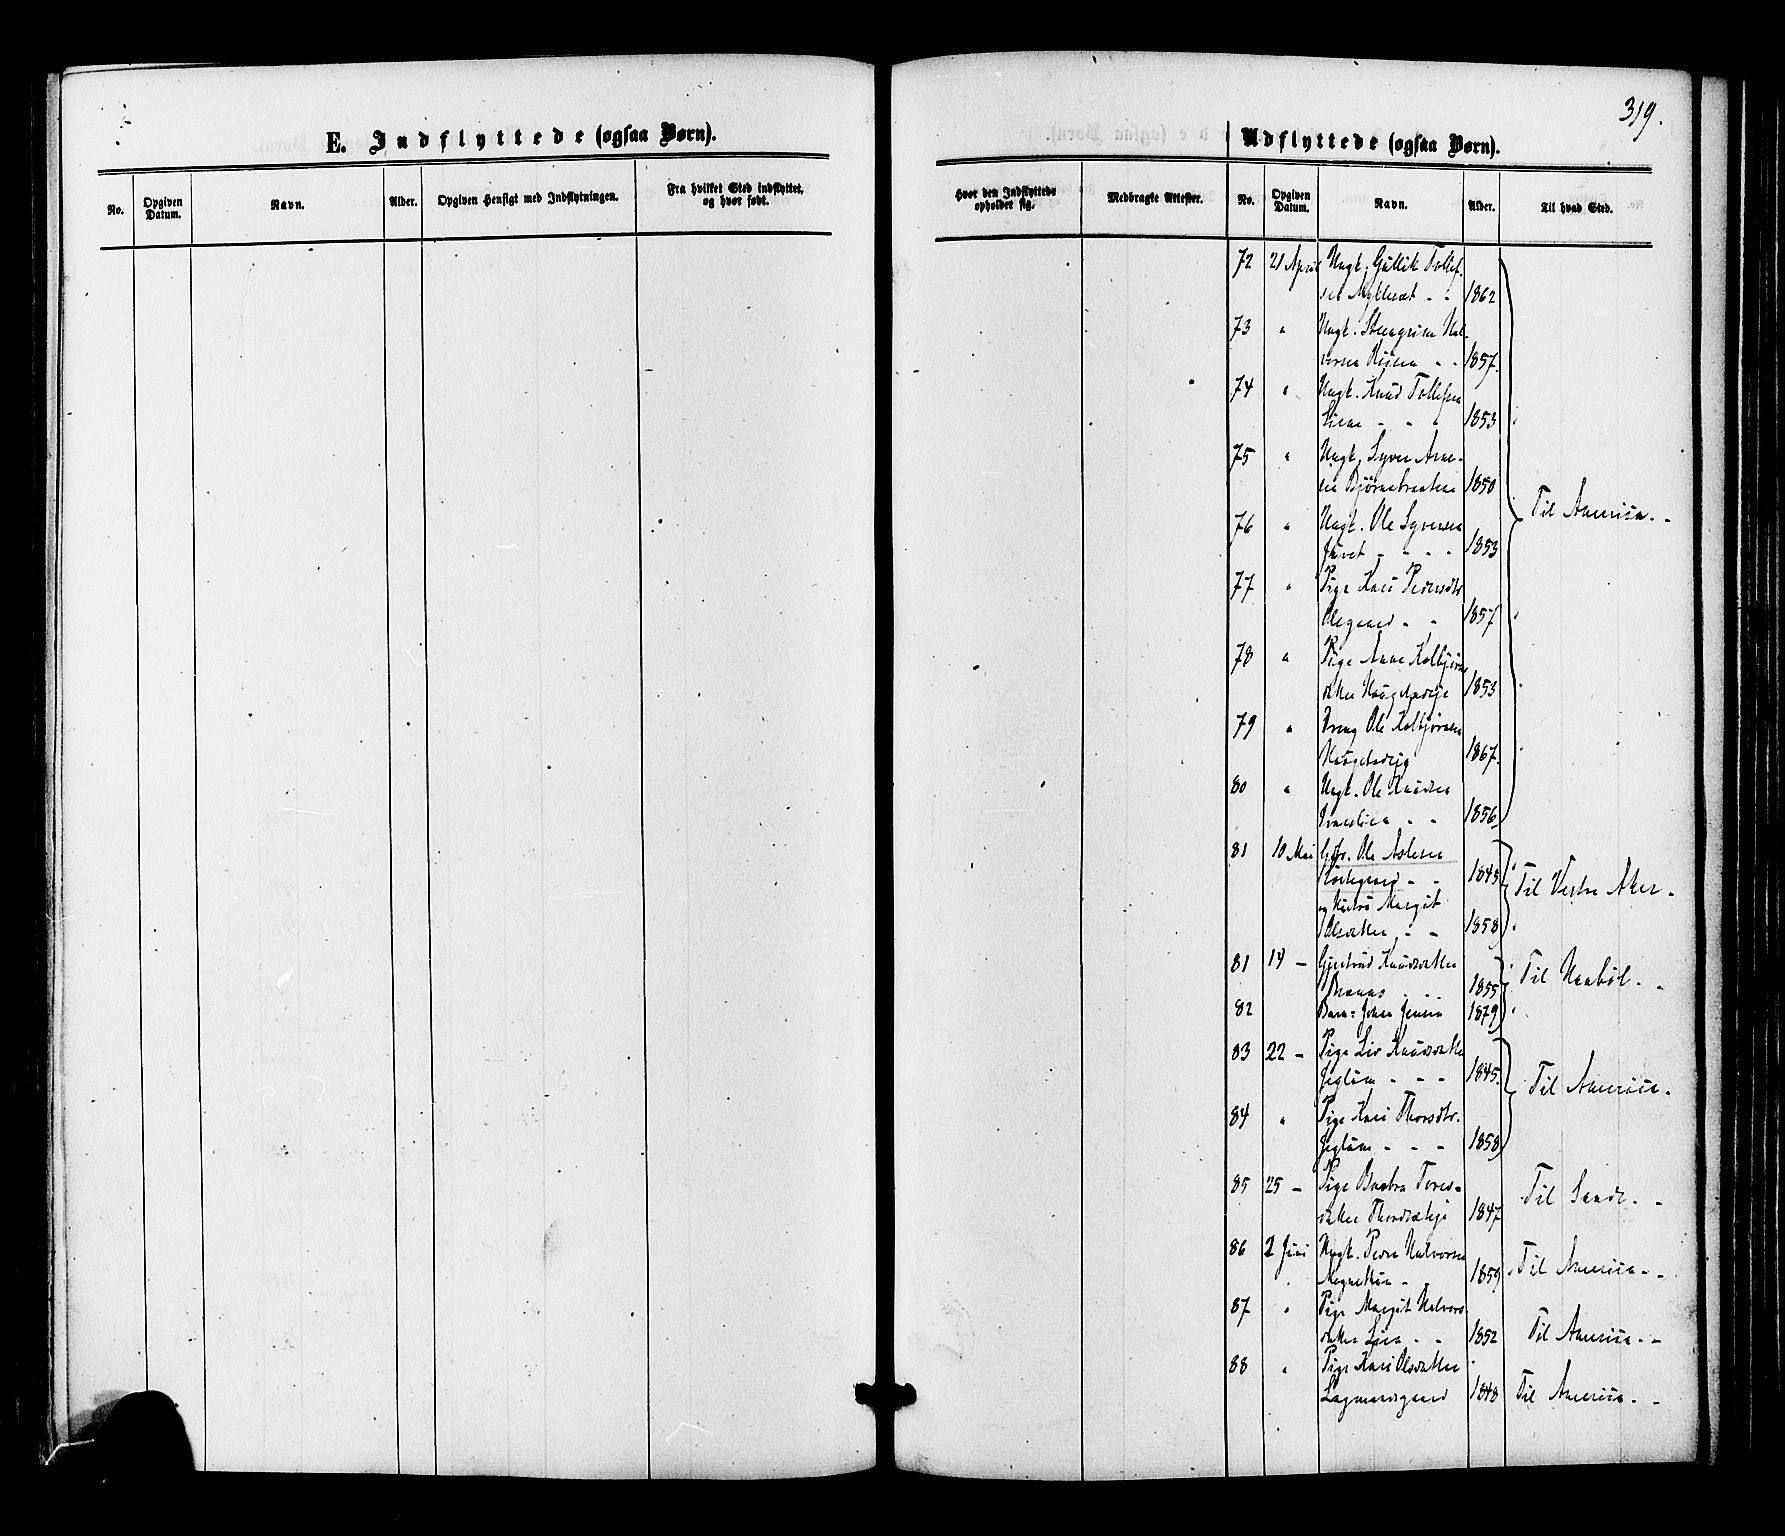 319.
E. Indflyttede (ogsaa Børn).
Udflyttede (ogsaa Børn).
No.
Opgiven Datum.
Navn.
Alder.
Opgiven Hensigt med Indflytningen.
Fra hvilket Sted indflyttet, og hvor født.
Hvor den Indflyttede opholder sig.
Medbragte Attester.
No.
Opgiven Datum.
Navn.
Alder.
Til hvad Sted.
72 21 April Ungk. Gullik Tollef-
sen 1862
73 " Ungk. Steengrim Hal-
vorsen 1857.
74 " Ungk. Knud Tollefsen
Liene - - - 1853
75 " Ungk. Syver Arne-
sen Bjørnebraaten 1850
Til America. -
76 " Ungk. Ole Syversen
Juvet - - - - 1853
77 " Pige Kari Pedersdtr
- - 1857
78 " Pige Anne Kolbjørns
datter Haugstadeje 1853
79 " Dreng Ole Kolbjørnsen
Haugstadeje 1867.
80 " Ungk. Ole Knudsen
- - 1856
81 10 Mai Gbr. Ole Aslesen
- - 1843
Til Vestre Aker -
og Hustru Margit
Olsdatter - - 1858
81 14 - Gjertrud Knudsdatter
1855
Til Naabøl. -
82 Barn: Johan Jensen 1879
83 22 - Pige Liv Knudsdatter
Jeglum - - - 1845.
Til America.
84 " Pige Kari Thorsdtr.
Jeglum - - - 1858
85 25 - Pige Barbra Tores-
datter 1847
Til Sande. -
86 2 Juni Ungk. Peder Halvorsen
- 1859
Til America - -
87 " Pige Margit Halvors-
datter Lien - - 1852
Til America. -
88 " Pige Kari Olsdatter
Lagmandsgaard 1848
Til America. -